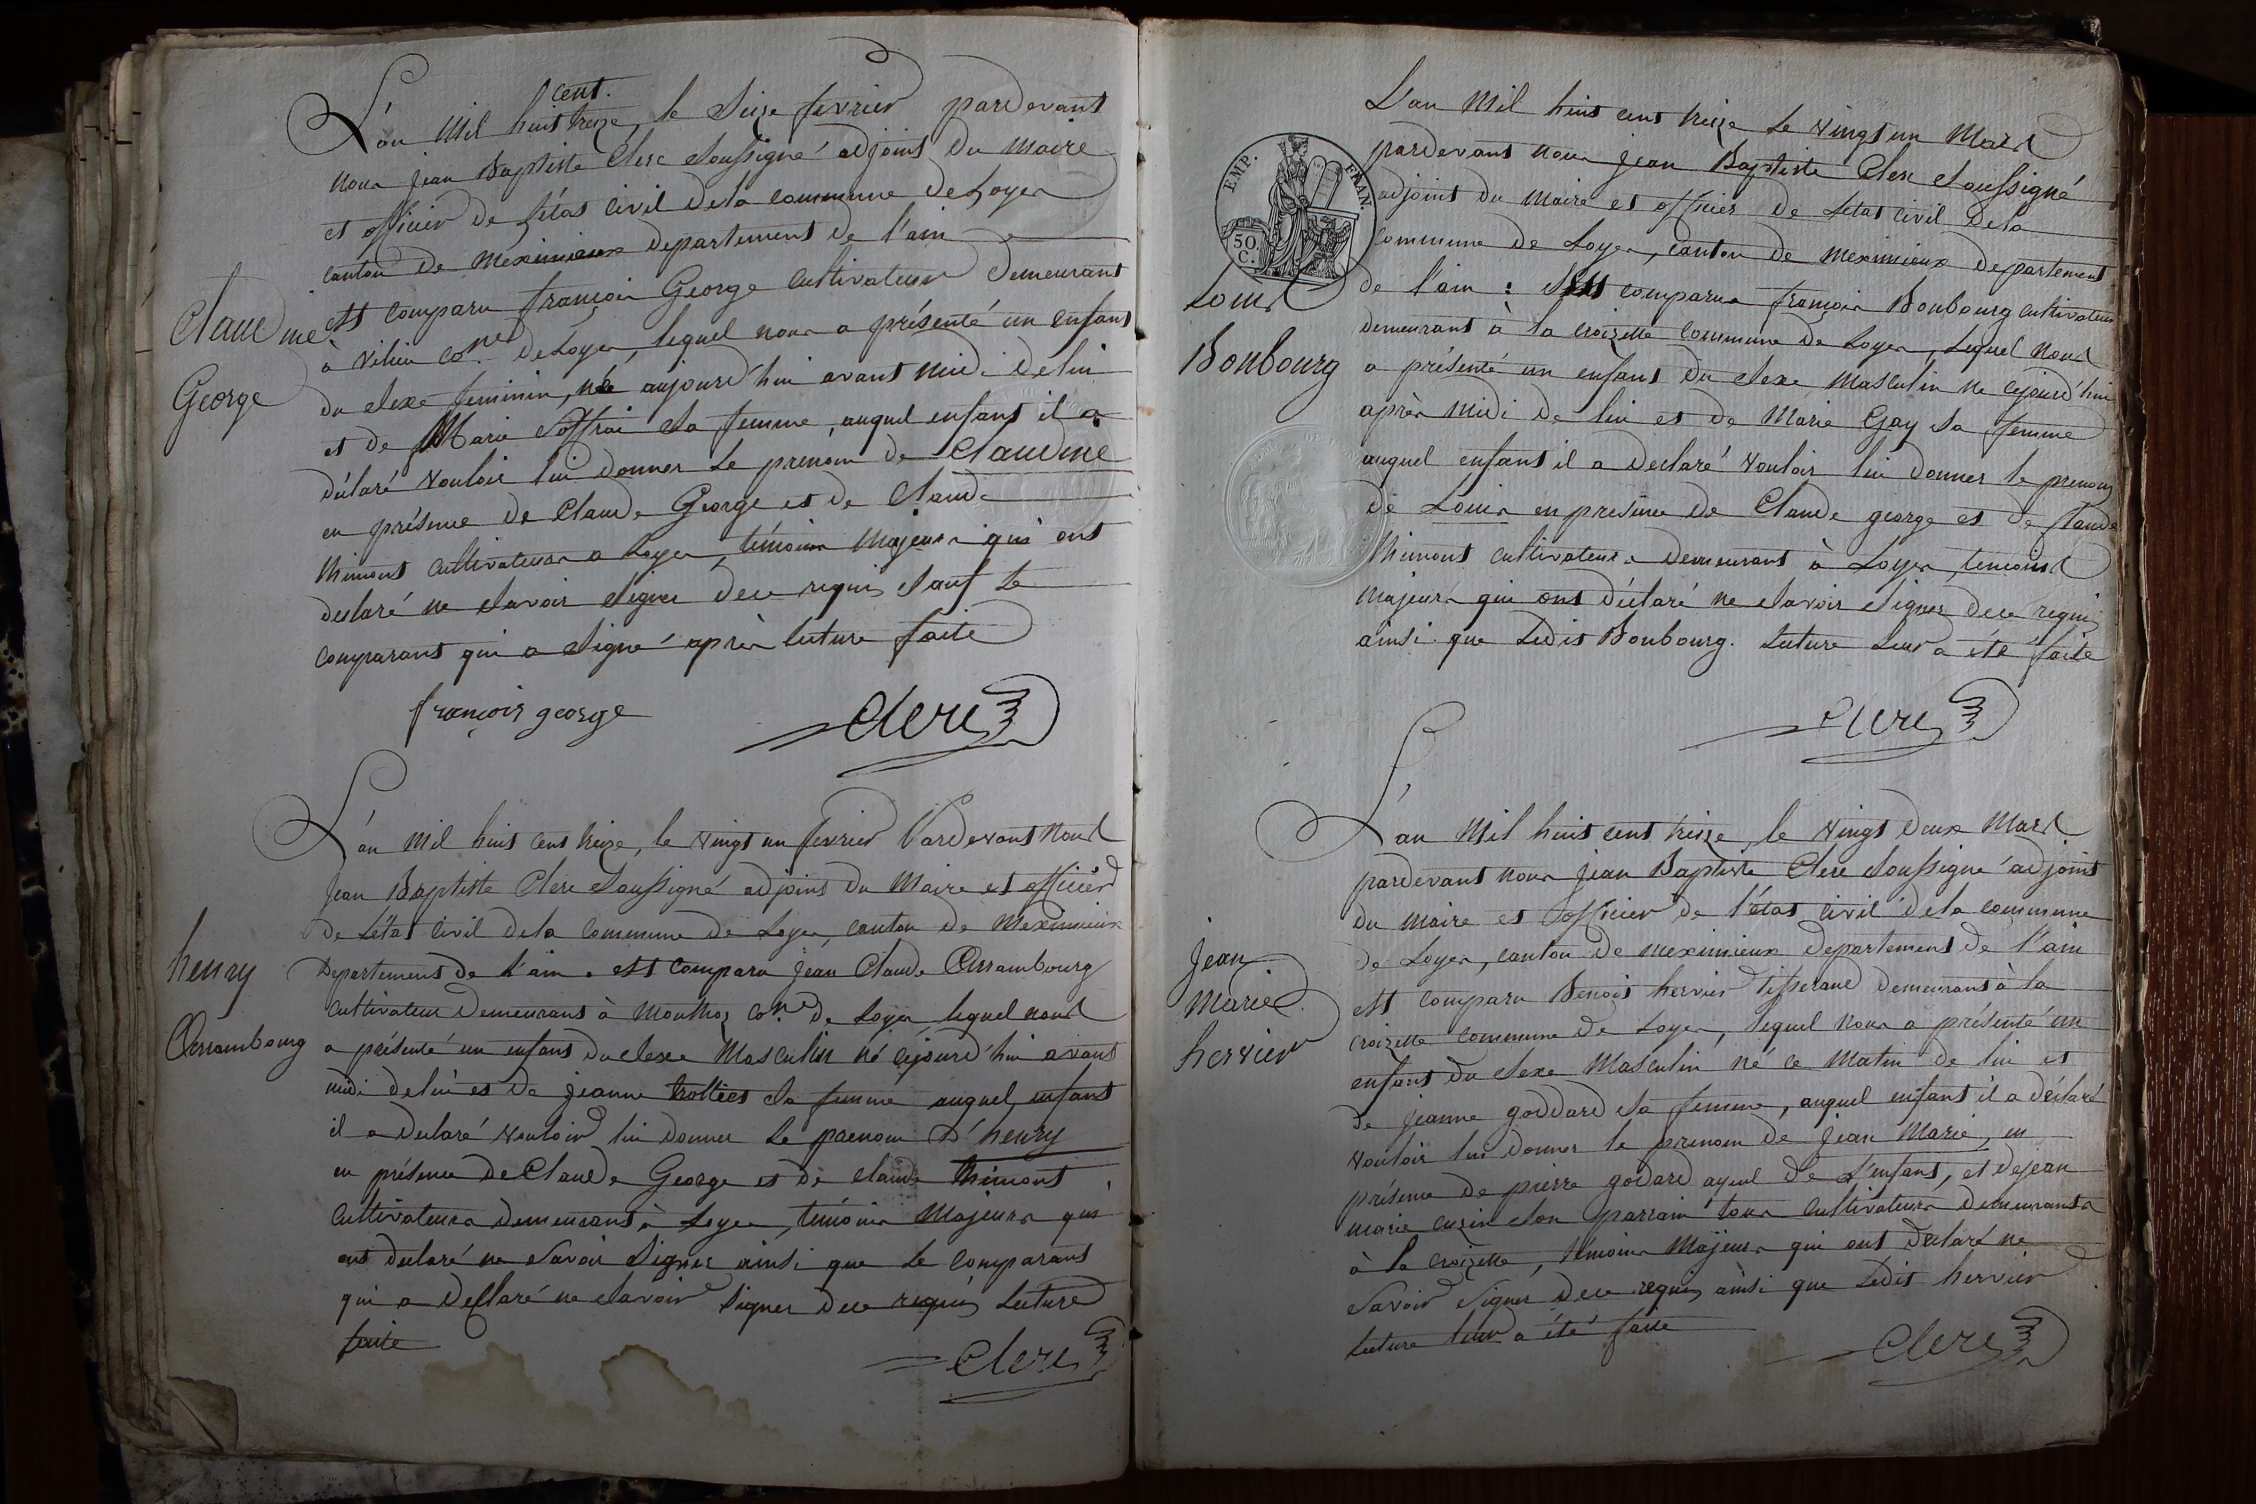 cent.
L'an mil huit treize, le seize fevrier pardevant
nous jean Baptiste Clerc soussigné adjoint du maire
et officier de l'état civil de la commune de Loyes
canton de meximieux departement de l'ain
est comparu françois George cultivateur demeurant
à vilieu co.ne de Loyes, lequel nous a présenté un enfant
du sexe feminin, née aujourd'hui avant midi de lui
et de Marie sa femme, auquel enfant il a
déclaré vouloir lui donner le prenom de Claudine
en présence de Claude George et de Claude
thimont cultivateurs a Loyes, témoins majeurs qui ont
declaré ne savoir signer de ce requis sauf le
comparant qui a signé après lecture faite
Claudine
George
françois george
Clerc
L'an mil huit cent treize, le vingt un fevrier Pardevant nous
Jean Baptiste Clerc soussigné adjoint du Maire et officier
de l'état civil de la commune de Loyes, canton de Meximieux
Departement de l'ain. est comparu jean Claude
cultivateur demeurant à co.ne de Loyes lequel nous
a présenté un enfant du sexe masculin né cejourd'hui avant
midi de lui et de jeanne sa femme auquel enfant
il a declaré vouloir lui donner le prenom d'henry
en présence de Claude George et de claude thimont
cultivateurs demeurant à Loyes, témoins majeurs qui
ont declaré ne savoir signer ainsi que le comparant
qui a declaré ne savoir signer de ce requis Lecture
faite
henry
Clerc
L'an mil huit cent treize le vingt un Mars
pardevant nous jean Baptiste Clerc soussigné
adjoint du maire et officier de l'état civil de la
commune de Loyes, canton de meximieux departement
de l'ain : est comparu françois Bonbourg cultivateur
demeurant à la croizette commune de Loyes, lequel nous
a présenté un enfant du sexe masculin né cejourd'hui
après midi de lui et de Marie Gay sa femme
auquel enfant il a declaré vouloir lui donner le prenom
de Louis en présence de Claude george et de Claude
thimont cultivateurs demeurant à Loyes, temoins
majeurs qui ont déclaré ne savoir signer de ce requis
ainsi que ledit Bonbourg. lecture leur a été faite
EMP. FRAN.
50.
C.
Louis
Bonbourg
Clerc
L'an mil huit cent treize, le vingt deux Mars
pardevant nous jean Baptiste Clerc soussigné adjoint
du maire et officier de l'état civil de la commune
de Loyes, canton de meximieux departement de l'ain
est comparu Benoit hervier tisserand demeurant à la
croizette commune de Loyes, lequel nous a présenté un
enfant du sexe Masculin né ce matin de lui et
de jeanne goddard sa femme, auquel enfant il a déclaré
vouloir lui donner le prenom de jean Marie, en
présence de pierre godard ayeul de l'enfant, et de jean
marie cuzin son parrain tous cultivateurs demeurants
à la croizette, témoins majeurs qui ont declaré ne
savoir signer de ce requis ainsi que ledit hervier
lecture leur a été faite
jean
marie
hervier
Clerc